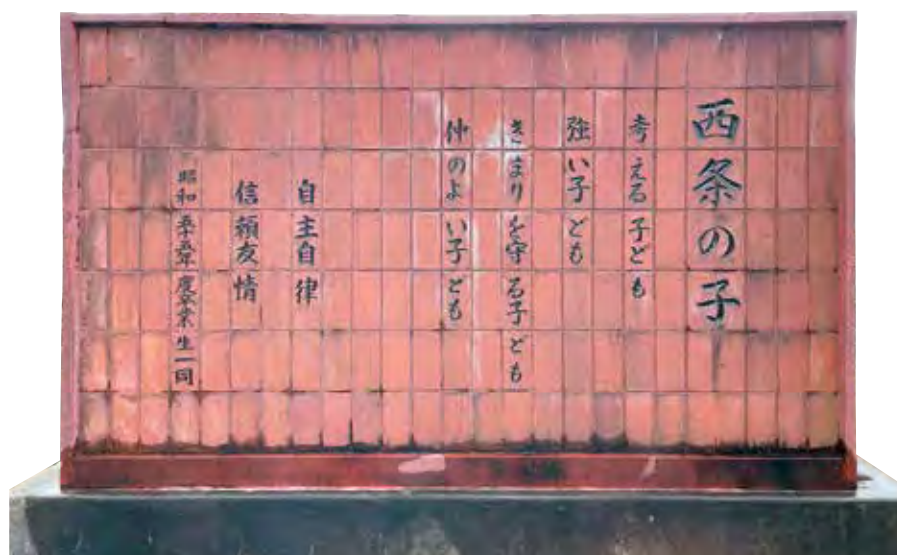 西条の子
考える子ども
強い子ども
きまりを守る子ども
仲のよい子ども
自主自律
信頼友情
昭和五十五年度卒業生一同